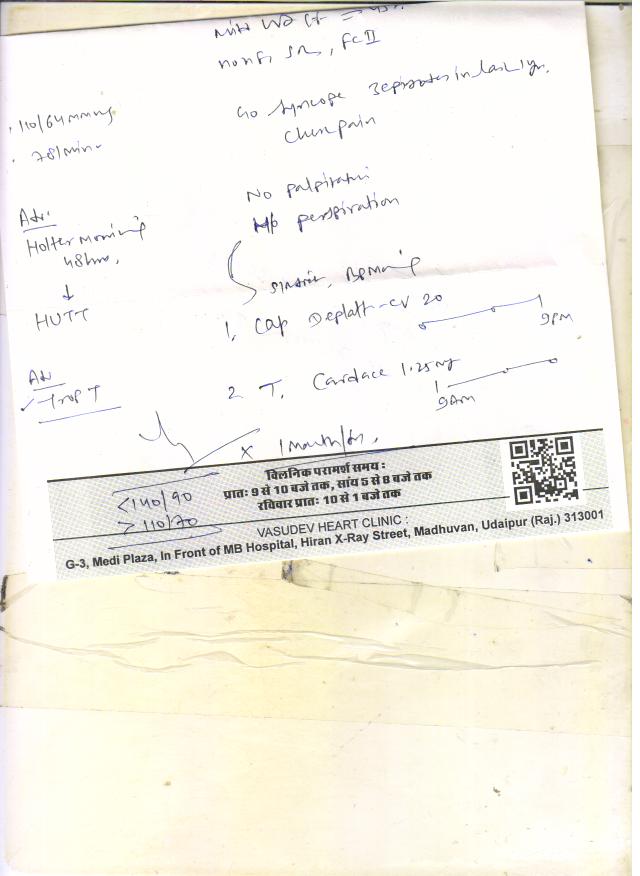 NORM SR, FC II
110/64 mmHg
78/min
C/o Syncope 3 episodes in last 1 yr.
Chest pain
No palpitation
H/o perspiration
Adv.
Holter Monitoring
48 hrs.
↓
HUTT
1. Cap Deplatt-CV 20
9PM
Adv
✓ Trop T
2 T. Cardace 1.25 mg
9AM
x 1 month
<140/90
>110/70
क्लिनिक परामर्श समय :
प्रातः 9 से 10 बजे तक, सांय 5 से 8 बजे तक
रविवार प्रातः 10 से 1 बजे तक
VASUDEV HEART CLINIC :
G-3, Medi Plaza, In Front of MB Hospital, Hiran X-Ray Street, Madhuvan, Udaipur (Raj.) 313001